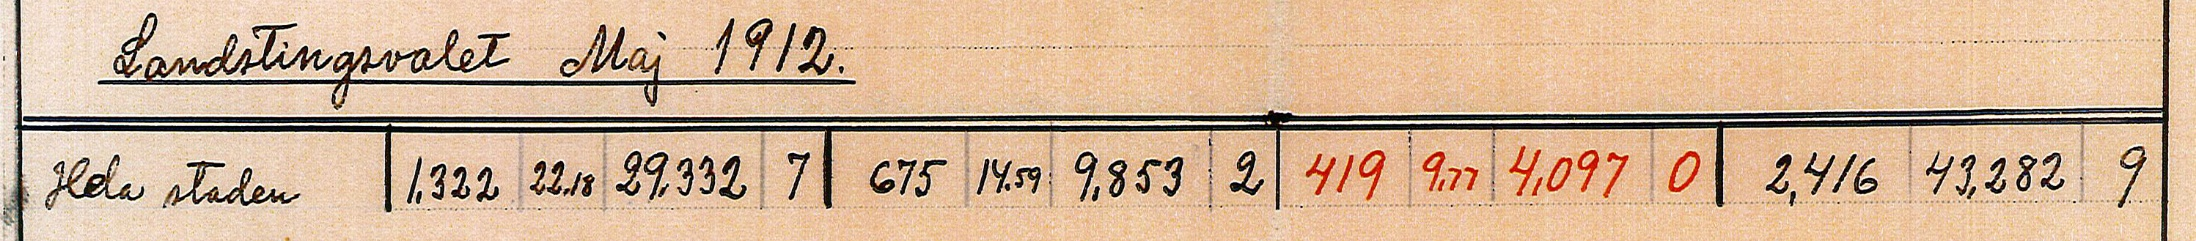 Landstingsvalet Maj 1912.
Hela staden 1,322 22,18 29,332 7 675 14,59 9,853 2 419 9,77 4,097 0 2,416 43,282 9